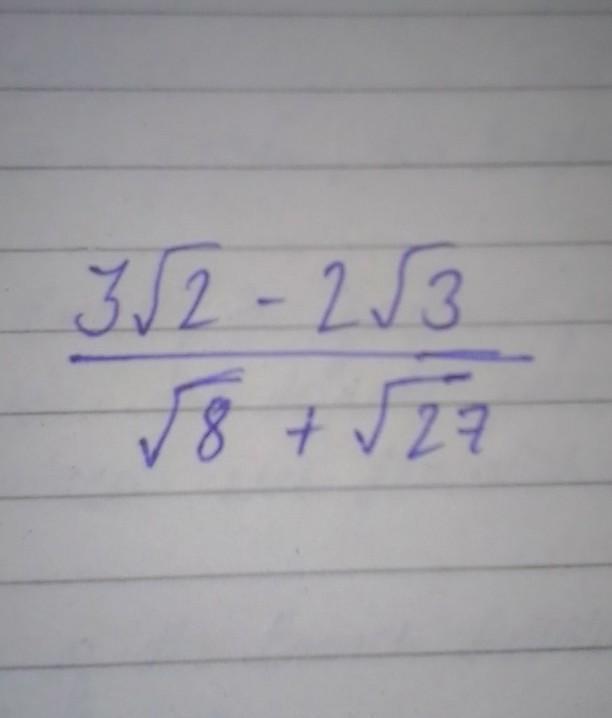 3√2 - 2√3
√8 + √27